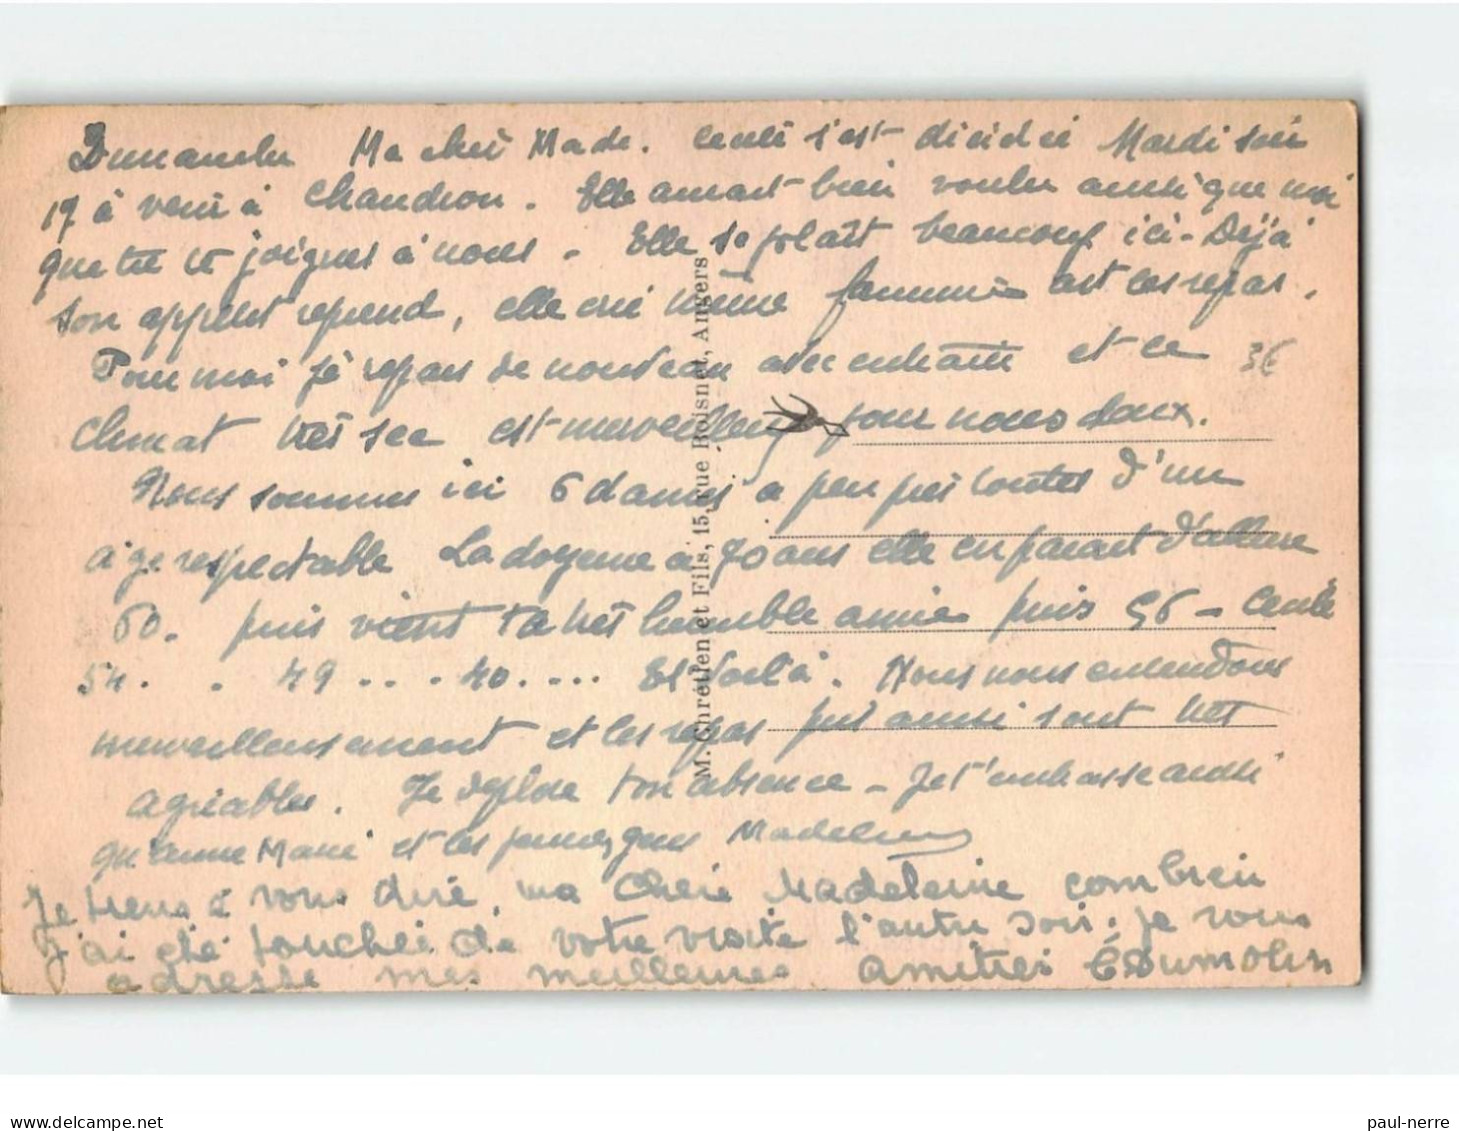 Dimanche Ma chère Made. Cécile s'est décidée Mardi soir
17 à venir à Chaudron. Elle aurait bien voulu ainsi que moi
que tu te joignes à nous. Elle se plaît beaucoup ici - Déjà
son appétit reprend, elle crie même famine avt les repas.
Pour moi je repars de nouveau avec entrain et ce 36
climat très sec est merveilleux pour nous deux.
Nous sommes ici 6 dames à peu près toutes d'un
âge respectable La doyenne a 70 ans elle en paraît d'allure
60. puis vient ta très humble amie puis 56 - Cécile
54. . 49 . . . 40. . . . Et voilà. Nous nous entendons
merveilleusement et les repas pris ainsi sont très
agréables. Je déplore ton absence - Je t'embrasse ainsi
qu'Anne Marie et les jeunes gens Madeleine
Je tiens à vous dire, ma Chère Madeleine combien
j'ai été touchée de votre visite l'autre soir. je vous
adresse mes meilleures amitiés C Dumolin
M. Chrétien et Fils, 15, rue Boisnet, Angers
paul-nerre